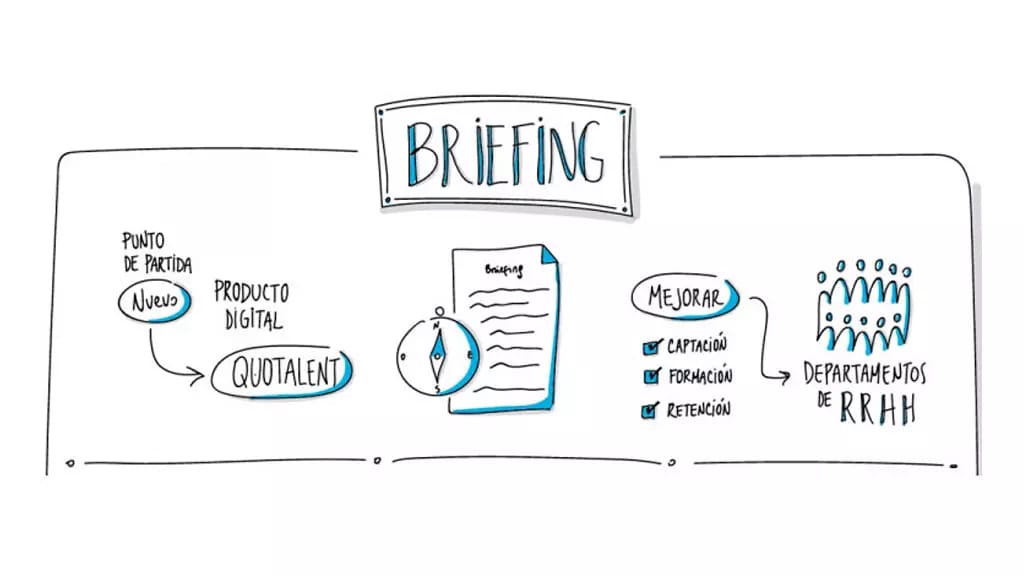 BRIEFING
PUNTO
DE PARTIDA
Nuevo
PRODUCTO
DIGITAL
QUOTALENT
Briefing
N
E
S
O
MEJORAR
CAPTACIÓN
FORMACIÓN
RETENCIÓN
DEPARTAMENTOS
DE RRHH